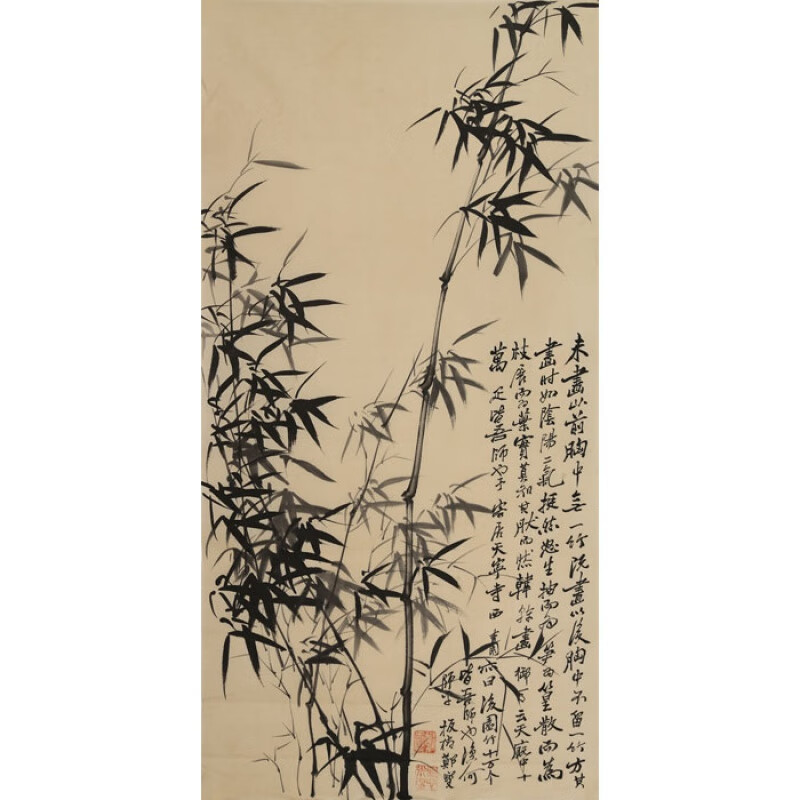 未畫以前胸中無一竹既畫以後胸中不留一竹方其
畫時如陰陽二氣挺然怒生抽而為 而篁散而為
枝展而為葉實莫知其然而然韓幹畫御馬云天廄中十
萬匹皆吾師也予客居天寧寺西 亦曰後園竹十萬个
皆吾師也復何
師乎板橋鄭燮